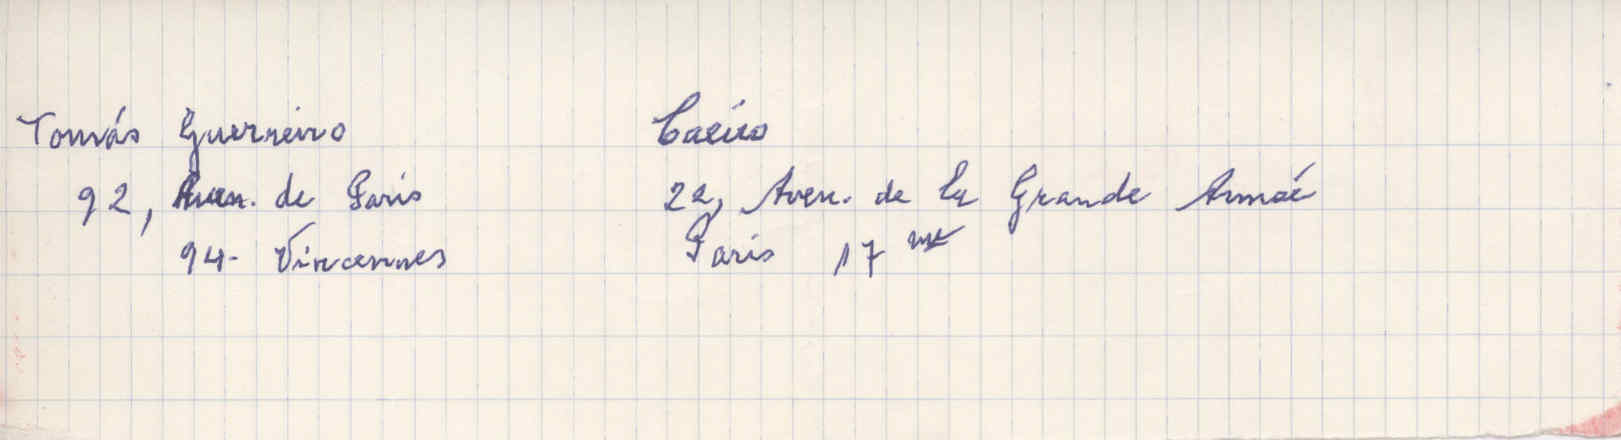 Tomás Guerreiro
92, Aven. de Paris
94- Vincennes
Caeiro
22, Aven. de la Grande Armée
Paris 17 me